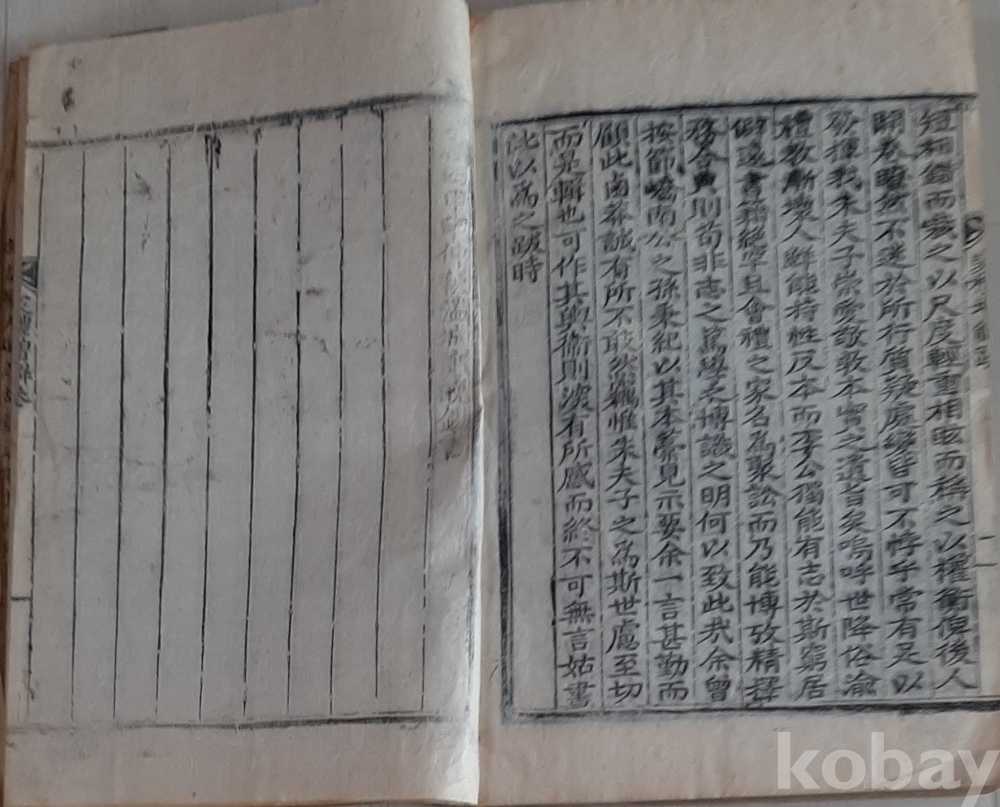 短相錯而裁之以尺度輕重相眩而稱之以權衡使後人
開卷瞭然不迷於所行質疑處變皆可不悖乎常有足以
發揮我朱夫子崇愛敬敦本實之遺旨矣嗚呼世降俗渝
禮敎漸壞人鮮能持性反本而李公獨能有志於斯窮居
僻遠書籍絶罕且會禮之家名爲聚訟而乃能博攷精擇
務合典則苟非志之篤學之博識之明何以致此哉余曾
按節嶠南公之孫秉紀以其本藁見示要余一言甚勤而
顧此鹵莽誠有所不敢然竊惟朱夫子之爲斯世慮至切
而是輯也可作其輿衛則深有所感而終不可無言姑書
此以爲之跋時
kobay